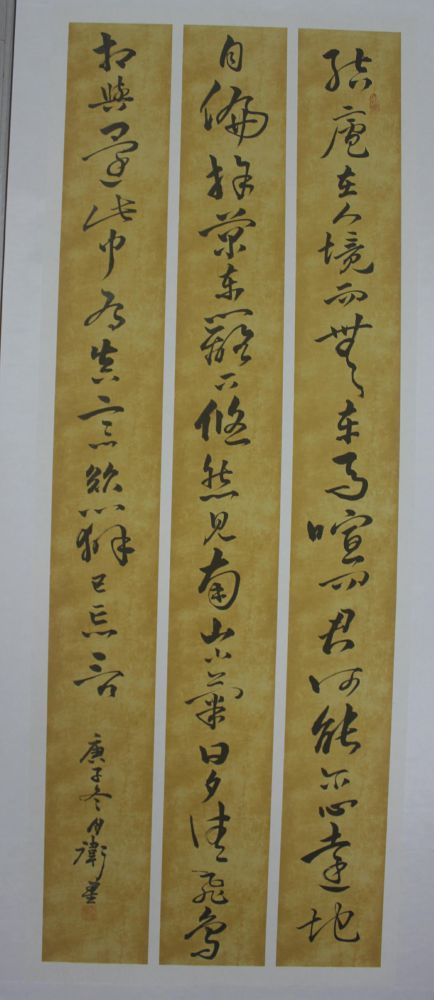 結廬在人境而無車馬喧問君何能尔心遠地
自偏採菊東籬下悠然見南山々氣日夕佳飛鳥
相與還此中有真意欲辨已忘言
庚子冬月衛星